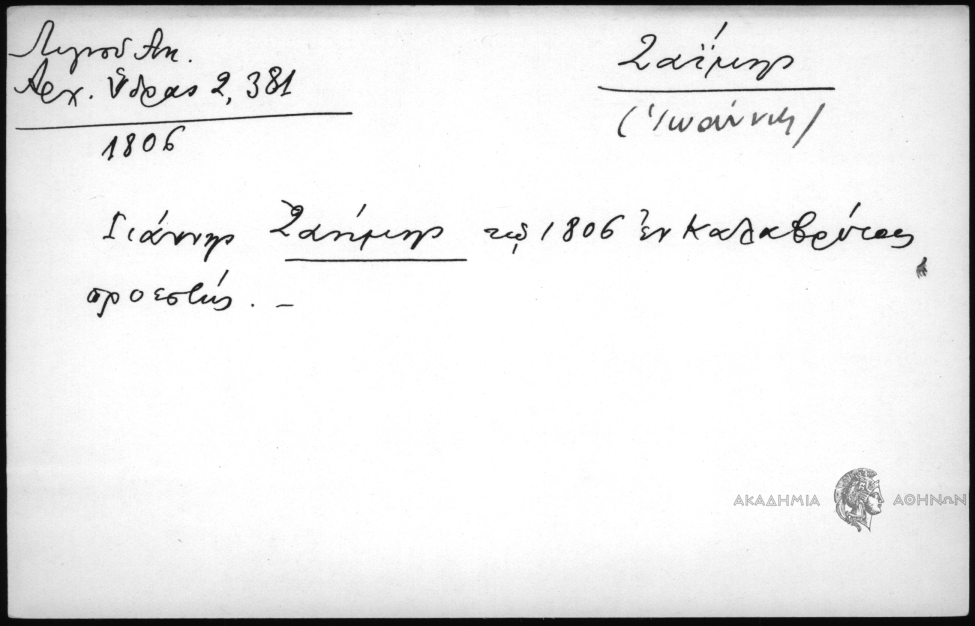 Λιγνοῦ Ἀν.
Ἀρχ. Ὕδρας 2, 381
1806
Ζαΐμης
(Ἰωάννης)
Γιάννης Ζαήμης τῷ 1806 ἐν Καλαβρύτοις
προεστώς. –
ΑΚΑΔΗΜΙΑ ΑΘΗΝΩΝ